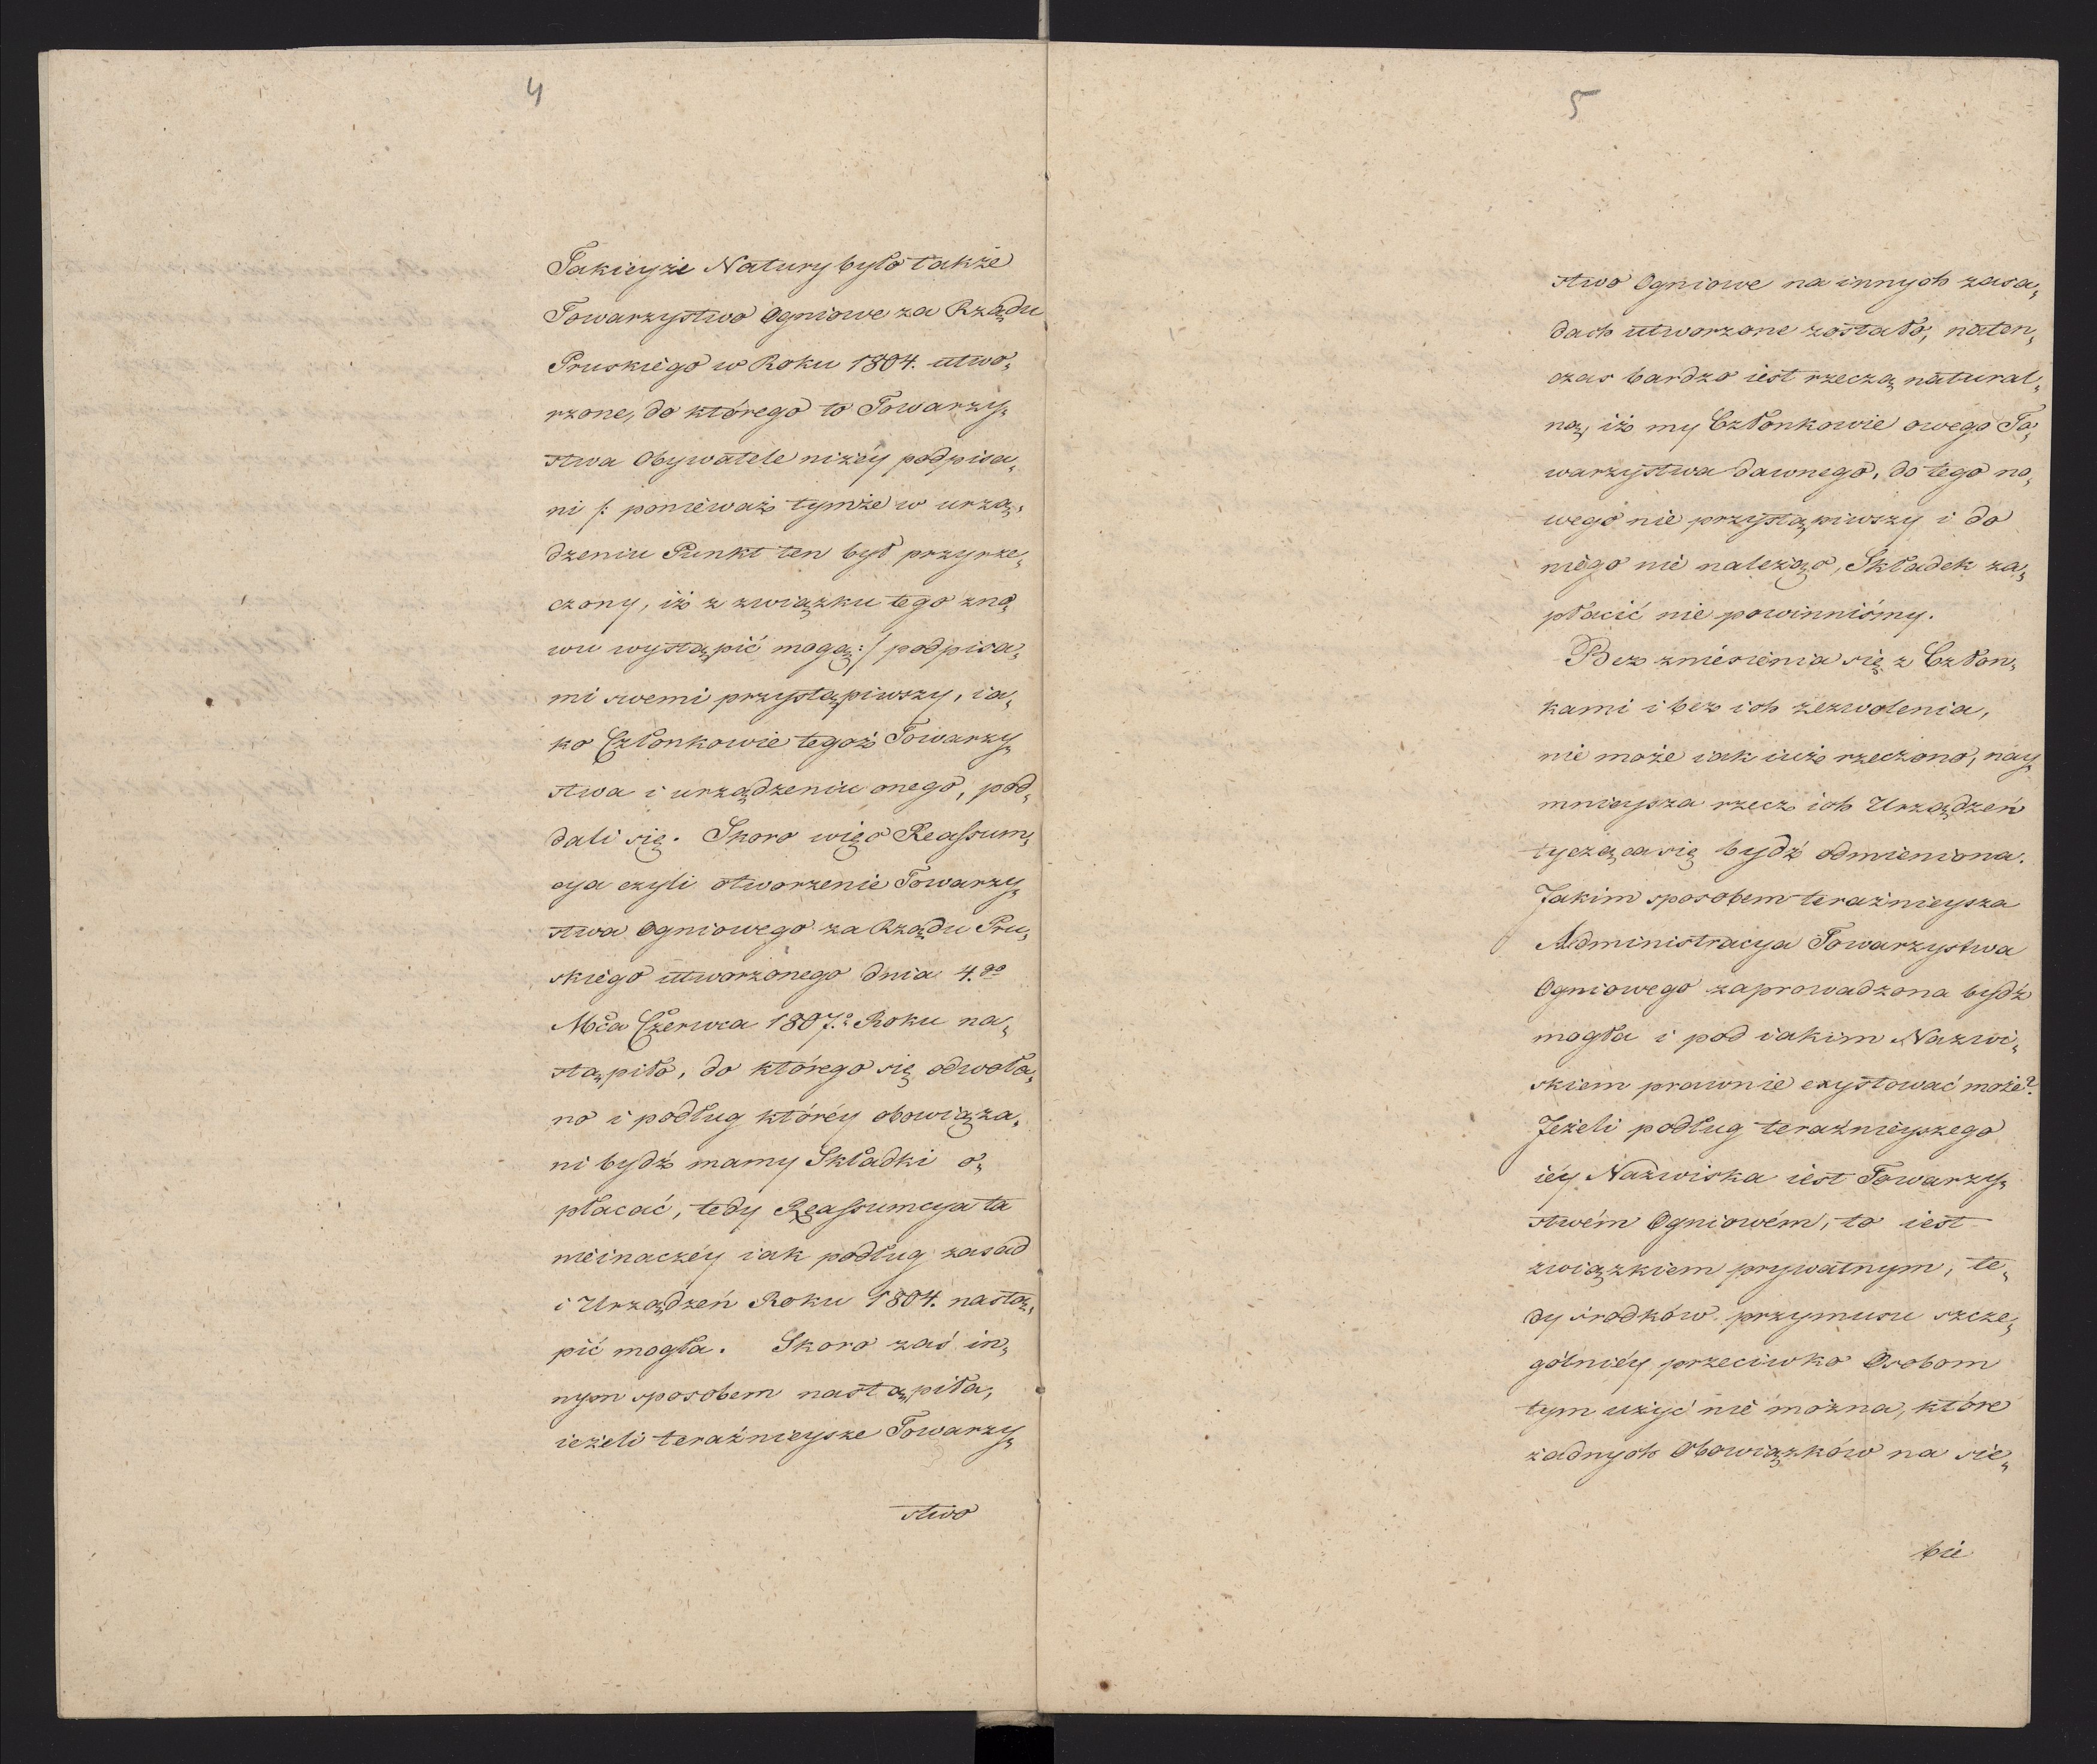 4
Takieyże Natury było także
Towarzystwo Ogniowe za Rządu
Pruskiego w Roku 1804. utwo„
rzone, do którego to Towarzy„
stwa Obywatele niżéy podpisa„
ni /: ponieważ tymże w urzą„
dzeniu Punkt ten był przyrze„
czony, iż z związku tego zno„
wu wystąpić mogą :/ podpisa„
mi swemi przystąpiwszy, ia„
ko Członkowie tegoż Towarzy„
stwa i urządzeniu onego, pod„
dali się. Skoro więc Reassum„
cya czyli otworzenie Towarzy„
stwa Ogniowego za Rządu Pru„
skiego utworzonego dnia 4.go
Mca Czerwca 1807.o Roku na„
stąpiło, do którego się odwoła„
no i podług któréy obowiąza„
ni bydź mamy Składki o„
płacać, tedy Reassumcya ta
nieinaczéy iak podług zasad
i Urządzeń Roku 1804. nastą„
pić mogła. Skoro zaś in„
nym sposobem nastąpiła,
ieżeli teraźnieysze Towarzy„
stwo
5
stwo Ogniowe na innych zasa„
dach utworzone zostało, naten„
czas bardzo iest rzeczą natural„
ną, iż my Członkowie owego To„
warzystwa dawnego, do tego no„
wego nie przystąpiwszy i do
niego nie należąc, Składek za„
płacić nie powinniśmy.
Bez zniesienia się z Człon„
kami i bez ich zezwolenia,
nie może iak iuż rzeczono, nay„
mnieysza rzecz ich Urządzeń
tycząca się bydź odmieniona.
Jakim sposobem teraźnieysza
Administracya Towarzystwa
Ogniowego zaprowadzona bydź
mogła i pod iakim Nazwi„
skiem prawnie exystować może?
Jeżeli podług teraźnieyszego
iéy Nazwiska iest Towarzy„
stwém Ogniowém, to iest
związkiem prywatnym, te„
dy środków przymusu szcze„
gólniéy przeciwko Osobom
tym użyć nie można, które
żadnych Obowiązków na sie„
bie